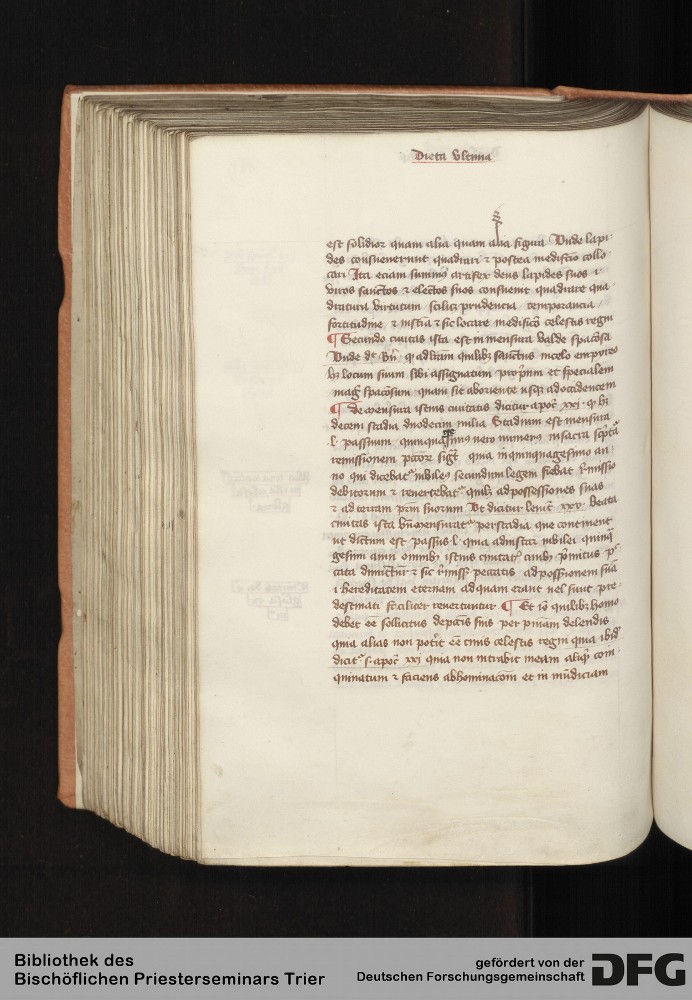 Dieta Vltima
est solidior quam alia quam alia figura Vnde lapi
des consueuerunt quadrari ⁊ postea medificio collo
cari Ita eciam summus artifex deus lapides suos i
viros sanctos ⁊ electos suos consueuit quadrare qua
dratura virtutum scilicz prudencia temporancia
fortitudine ⁊ iusticia ⁊ sic locare medificio celestis regni
¶ Secundo ciuitas ista est in mensura valde spaciosa
Vnde dt Bn̄ q ad licam quilibz sanctus in celo empyreo
hz locum suum sibi assignatum proprium et specialem
mag spaciosum quam sit ab oriente usqz ad occidentem
¶ de mensura istius ciuitatis dicitur apoc xxi q hz
decem stadia duodecim milia Stadium est mensura
l passuum quinqua nus uero numerus in sacra scpta
remissionem pctor sigt quia in quinquagesimo an
no qui dicebat iubileus secundum legem fiebat remissio
debitorum ⁊ reuertebat quilz ad possessiones suas
⁊ ad terram prm suorum Vt dicitur leuit xxv Beata
ciuitas ista bn mensurat per stadia que continent
ut dictum est passus l quia ad instar iubilei quinq
gesimi anni omnibus istius ciuitatis ciuibus primitus pec
cata dimittuntur ⁊ sic remissis peccatis ad possessionem suā
i hereditatem eternam ad quam erant uel sunt pre
destinati feliciter reuertuntur ¶ Et iō quilibz homo
debet ee sollicitus de peccatis suis per pniam delendis
quia alias non poterit eē ciuis celestis regni quia ibid
dicit s apoc xxi quia non intrabit in eam aliqd coin
quinatum ⁊ faciens abhominacōem et in mūdiciam
Bibliothek des
Bischöflichen Priesterseminars Trier
gefördert von der
Deutschen Forschungsgemeinschaft
DFG